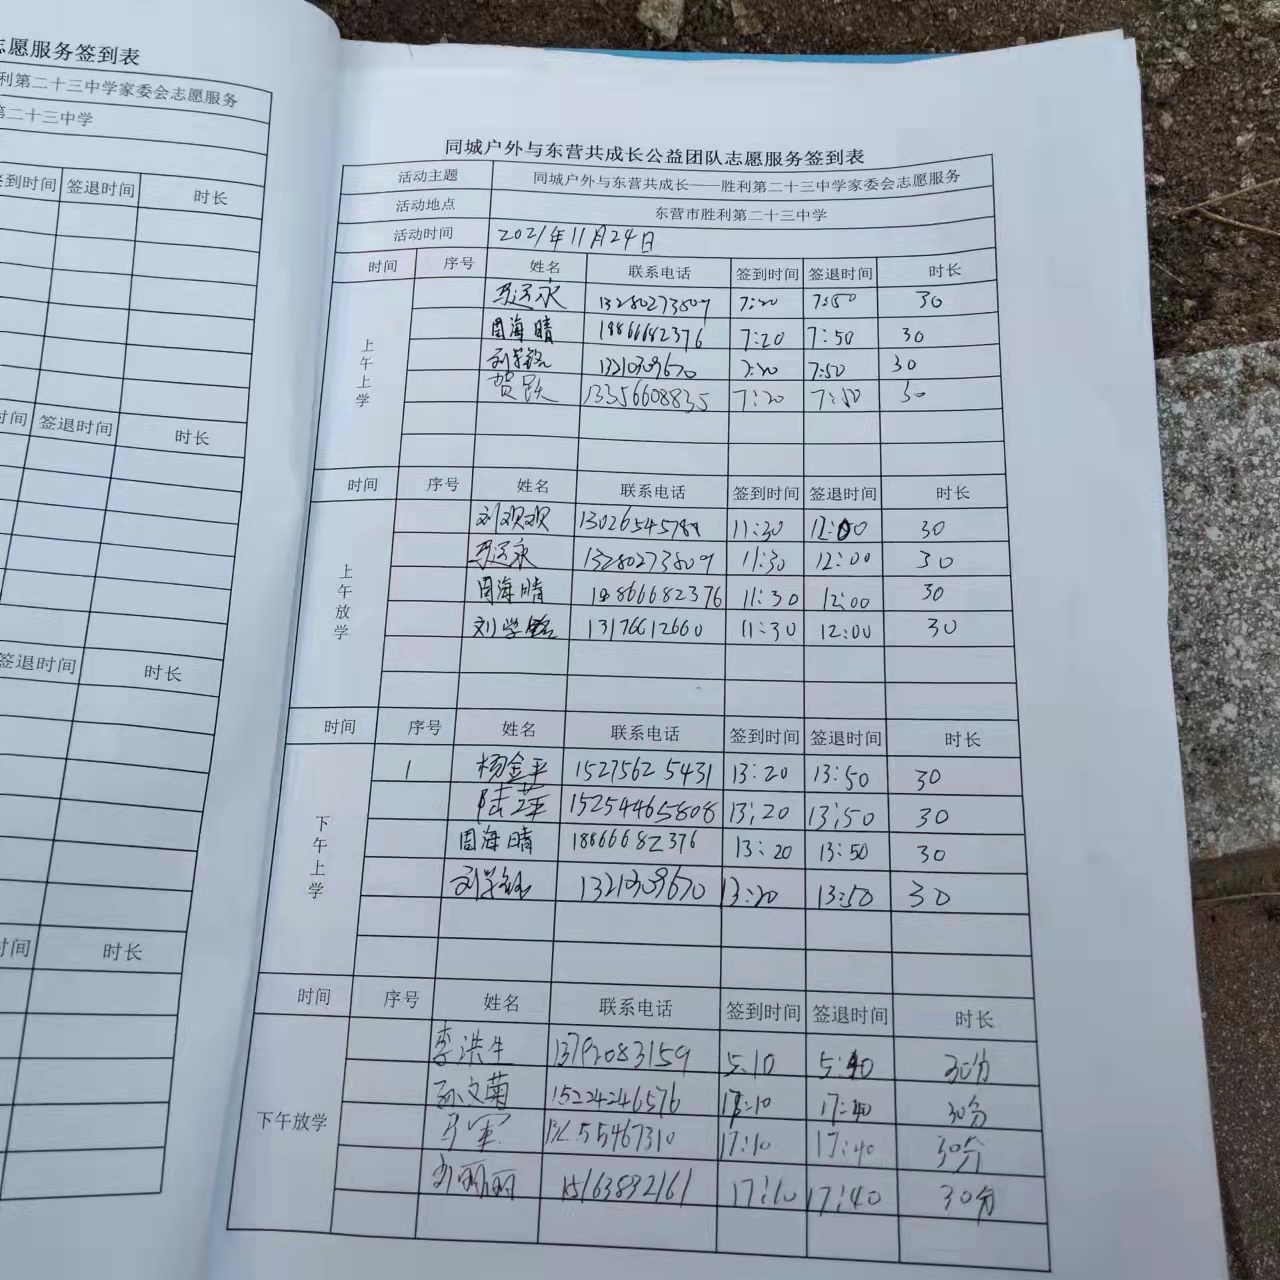 志愿服务签到表
利第二十三中学家委会志愿服务
第二十三中学
签到时间 签退时间 时长
时间 签退时间 时长
签退时间 时长
时间 时长
同城户外与东营共成长公益团队志愿服务签到表
活动主题 同城户外与东营共成长——胜利第二十三中学家委会志愿服务
活动地点 东营市胜利第二十三中学
活动时间 2021年11月24日
时间 序号 姓名 联系电话 签到时间 签退时间 时长
上午上学
13280273809 7:20 7:50 30
周海晴 18866682376 7:20 7:50 30
7:20 7:50 30
贺跃 13356608835 7:20 7:50 30
时间 序号 姓名 联系电话 签到时间 签退时间 时长
上午放学
刘欢欢 11:30 12:00 30
13280273809 11:30 12:00 30
周海晴 18866682376 11:30 12:00 30
刘学铭 13176612660 11:30 12:00 30
时间 序号 姓名 联系电话 签到时间 签退时间 时长
下午上学
1 杨金平 15275625431 13:20 13:50 30
陆萍 15254465808 13:20 13:50 30
周海晴 18866682376 13:20 13:50 30
13:20 13:50 30
时间 序号 姓名 联系电话 签到时间 签退时间 时长
下午放学
李洪生 5:10 5:40 30分
孙文菊 15224246576 17:10 17:40 30分
马军 17:10 17:40 30分
刘丽丽 15163892161 17:10 17:40 30分